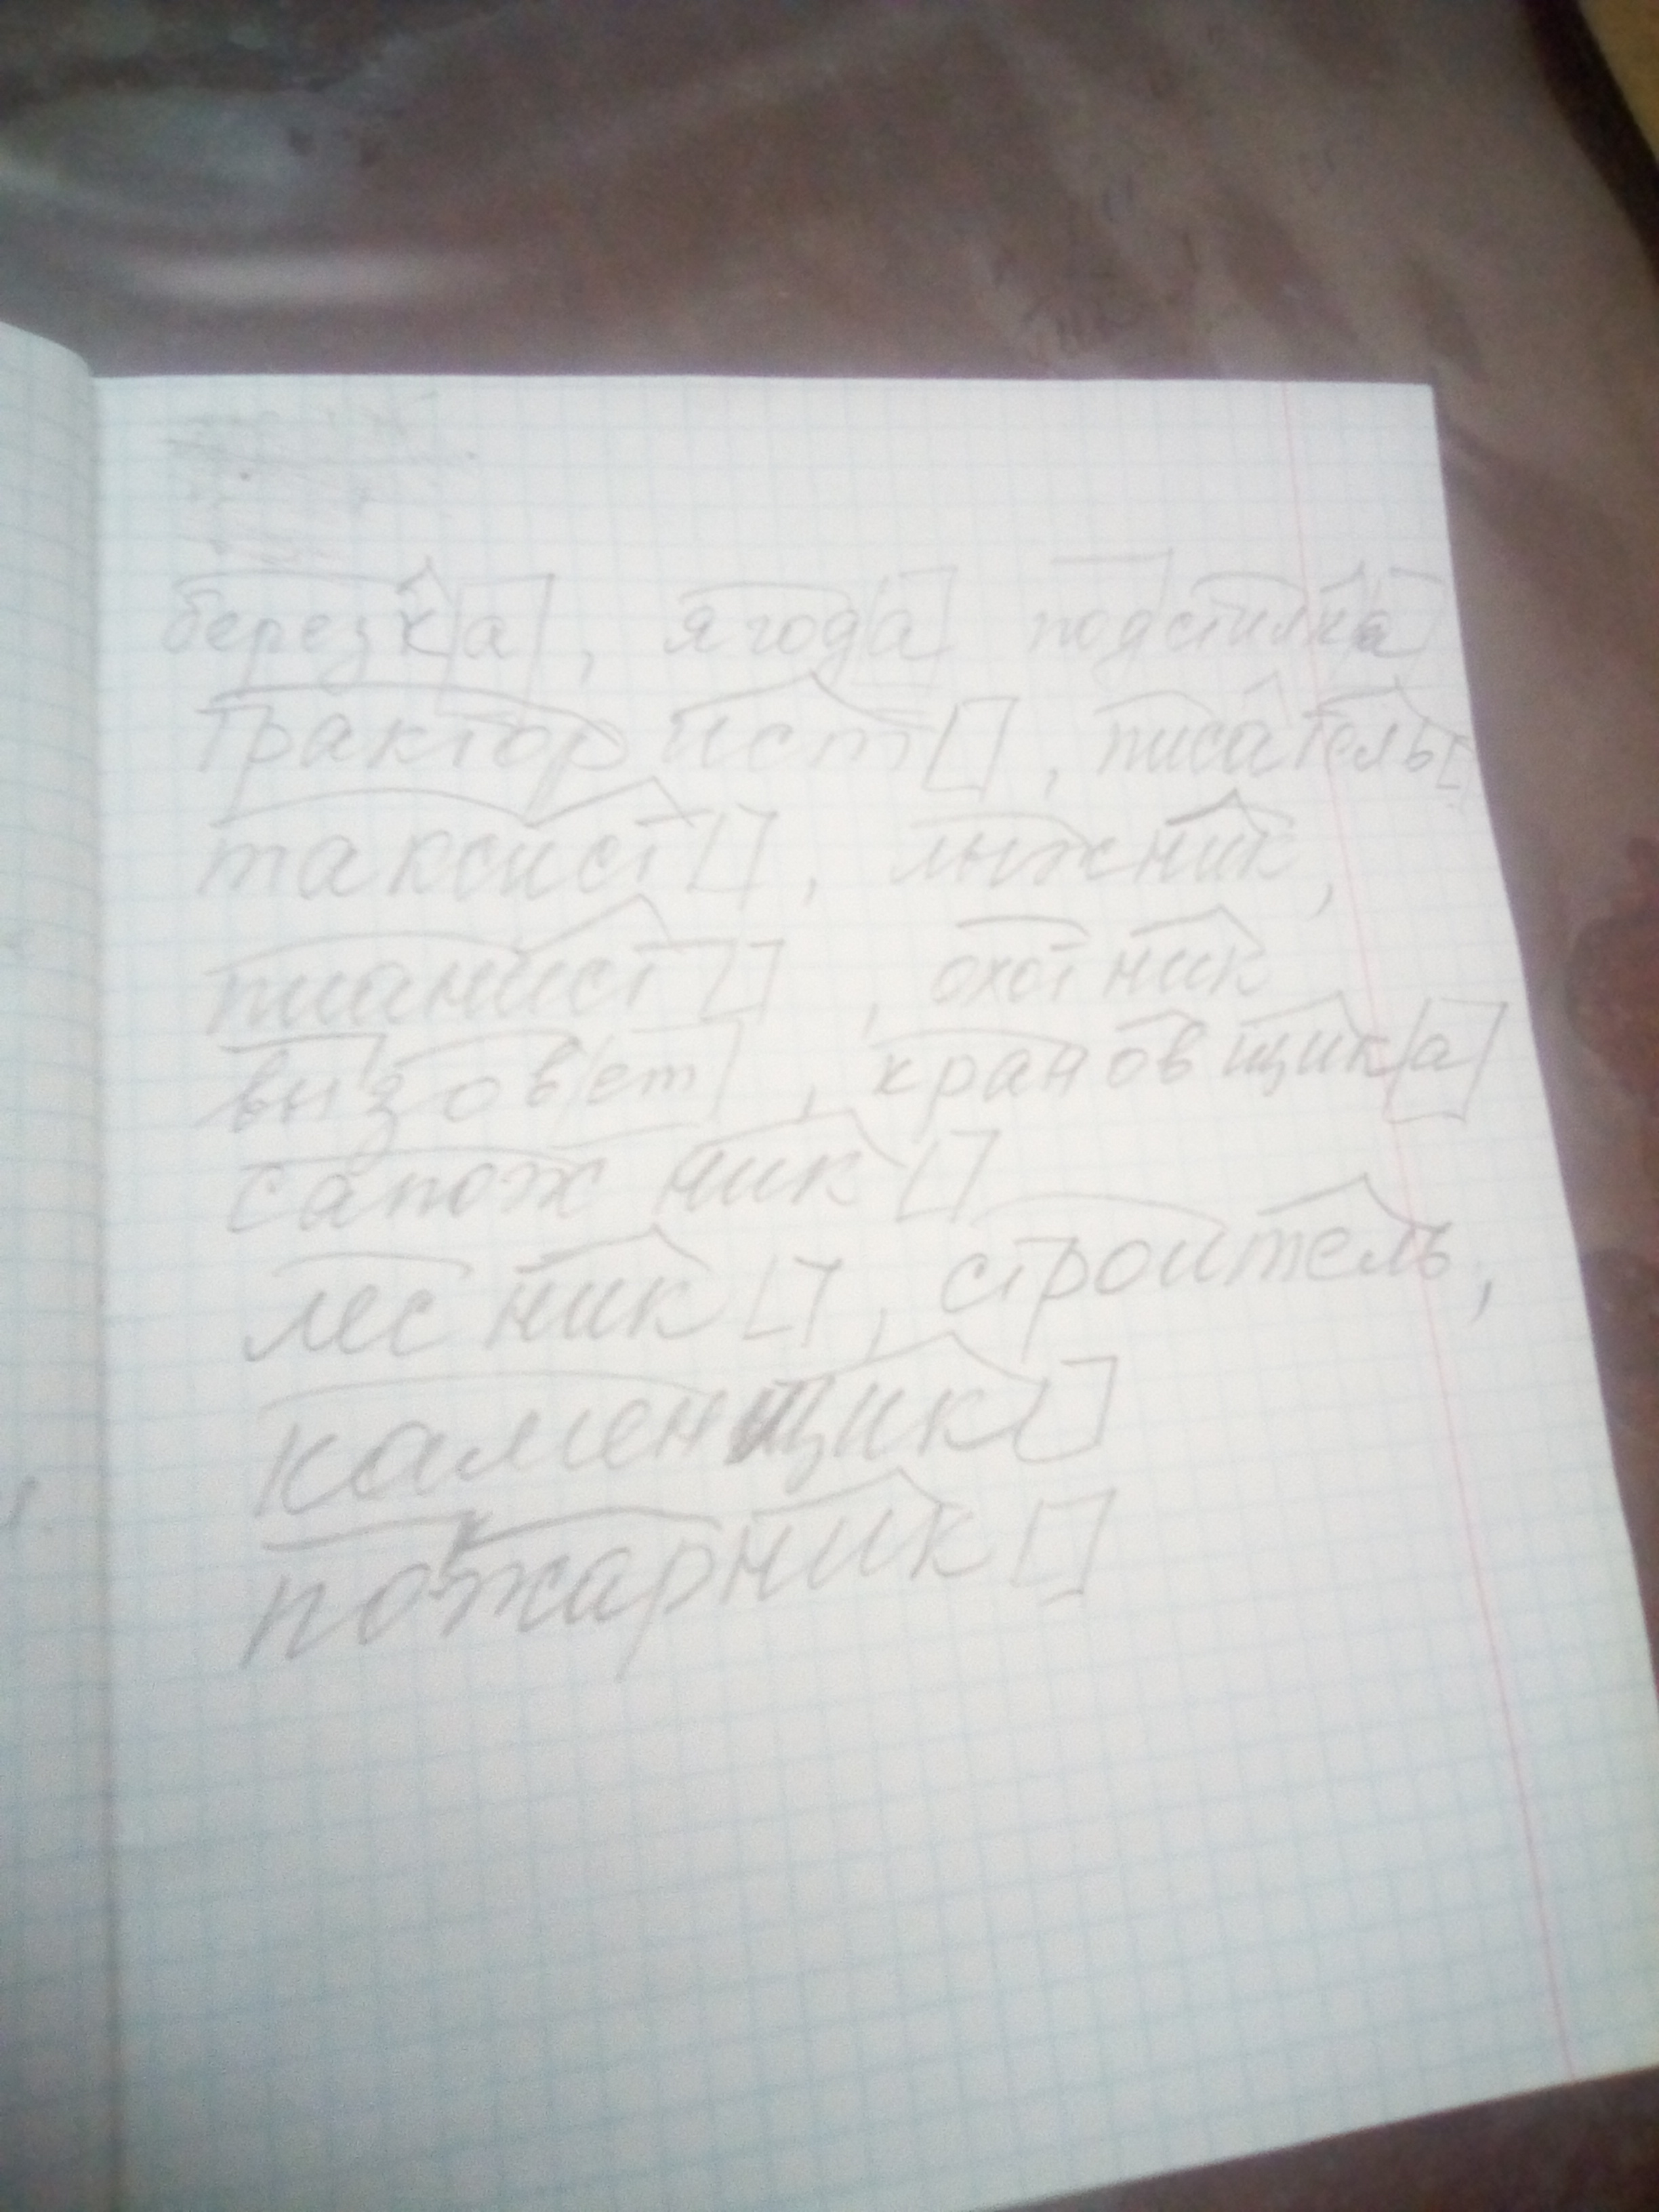 березка, ягода подстилка
тракторист, писатель
таксист, лыжник,
пианист, охотник
вызовет, крановщика
сапожник
лесник, строитель,
каменщик
пожарник